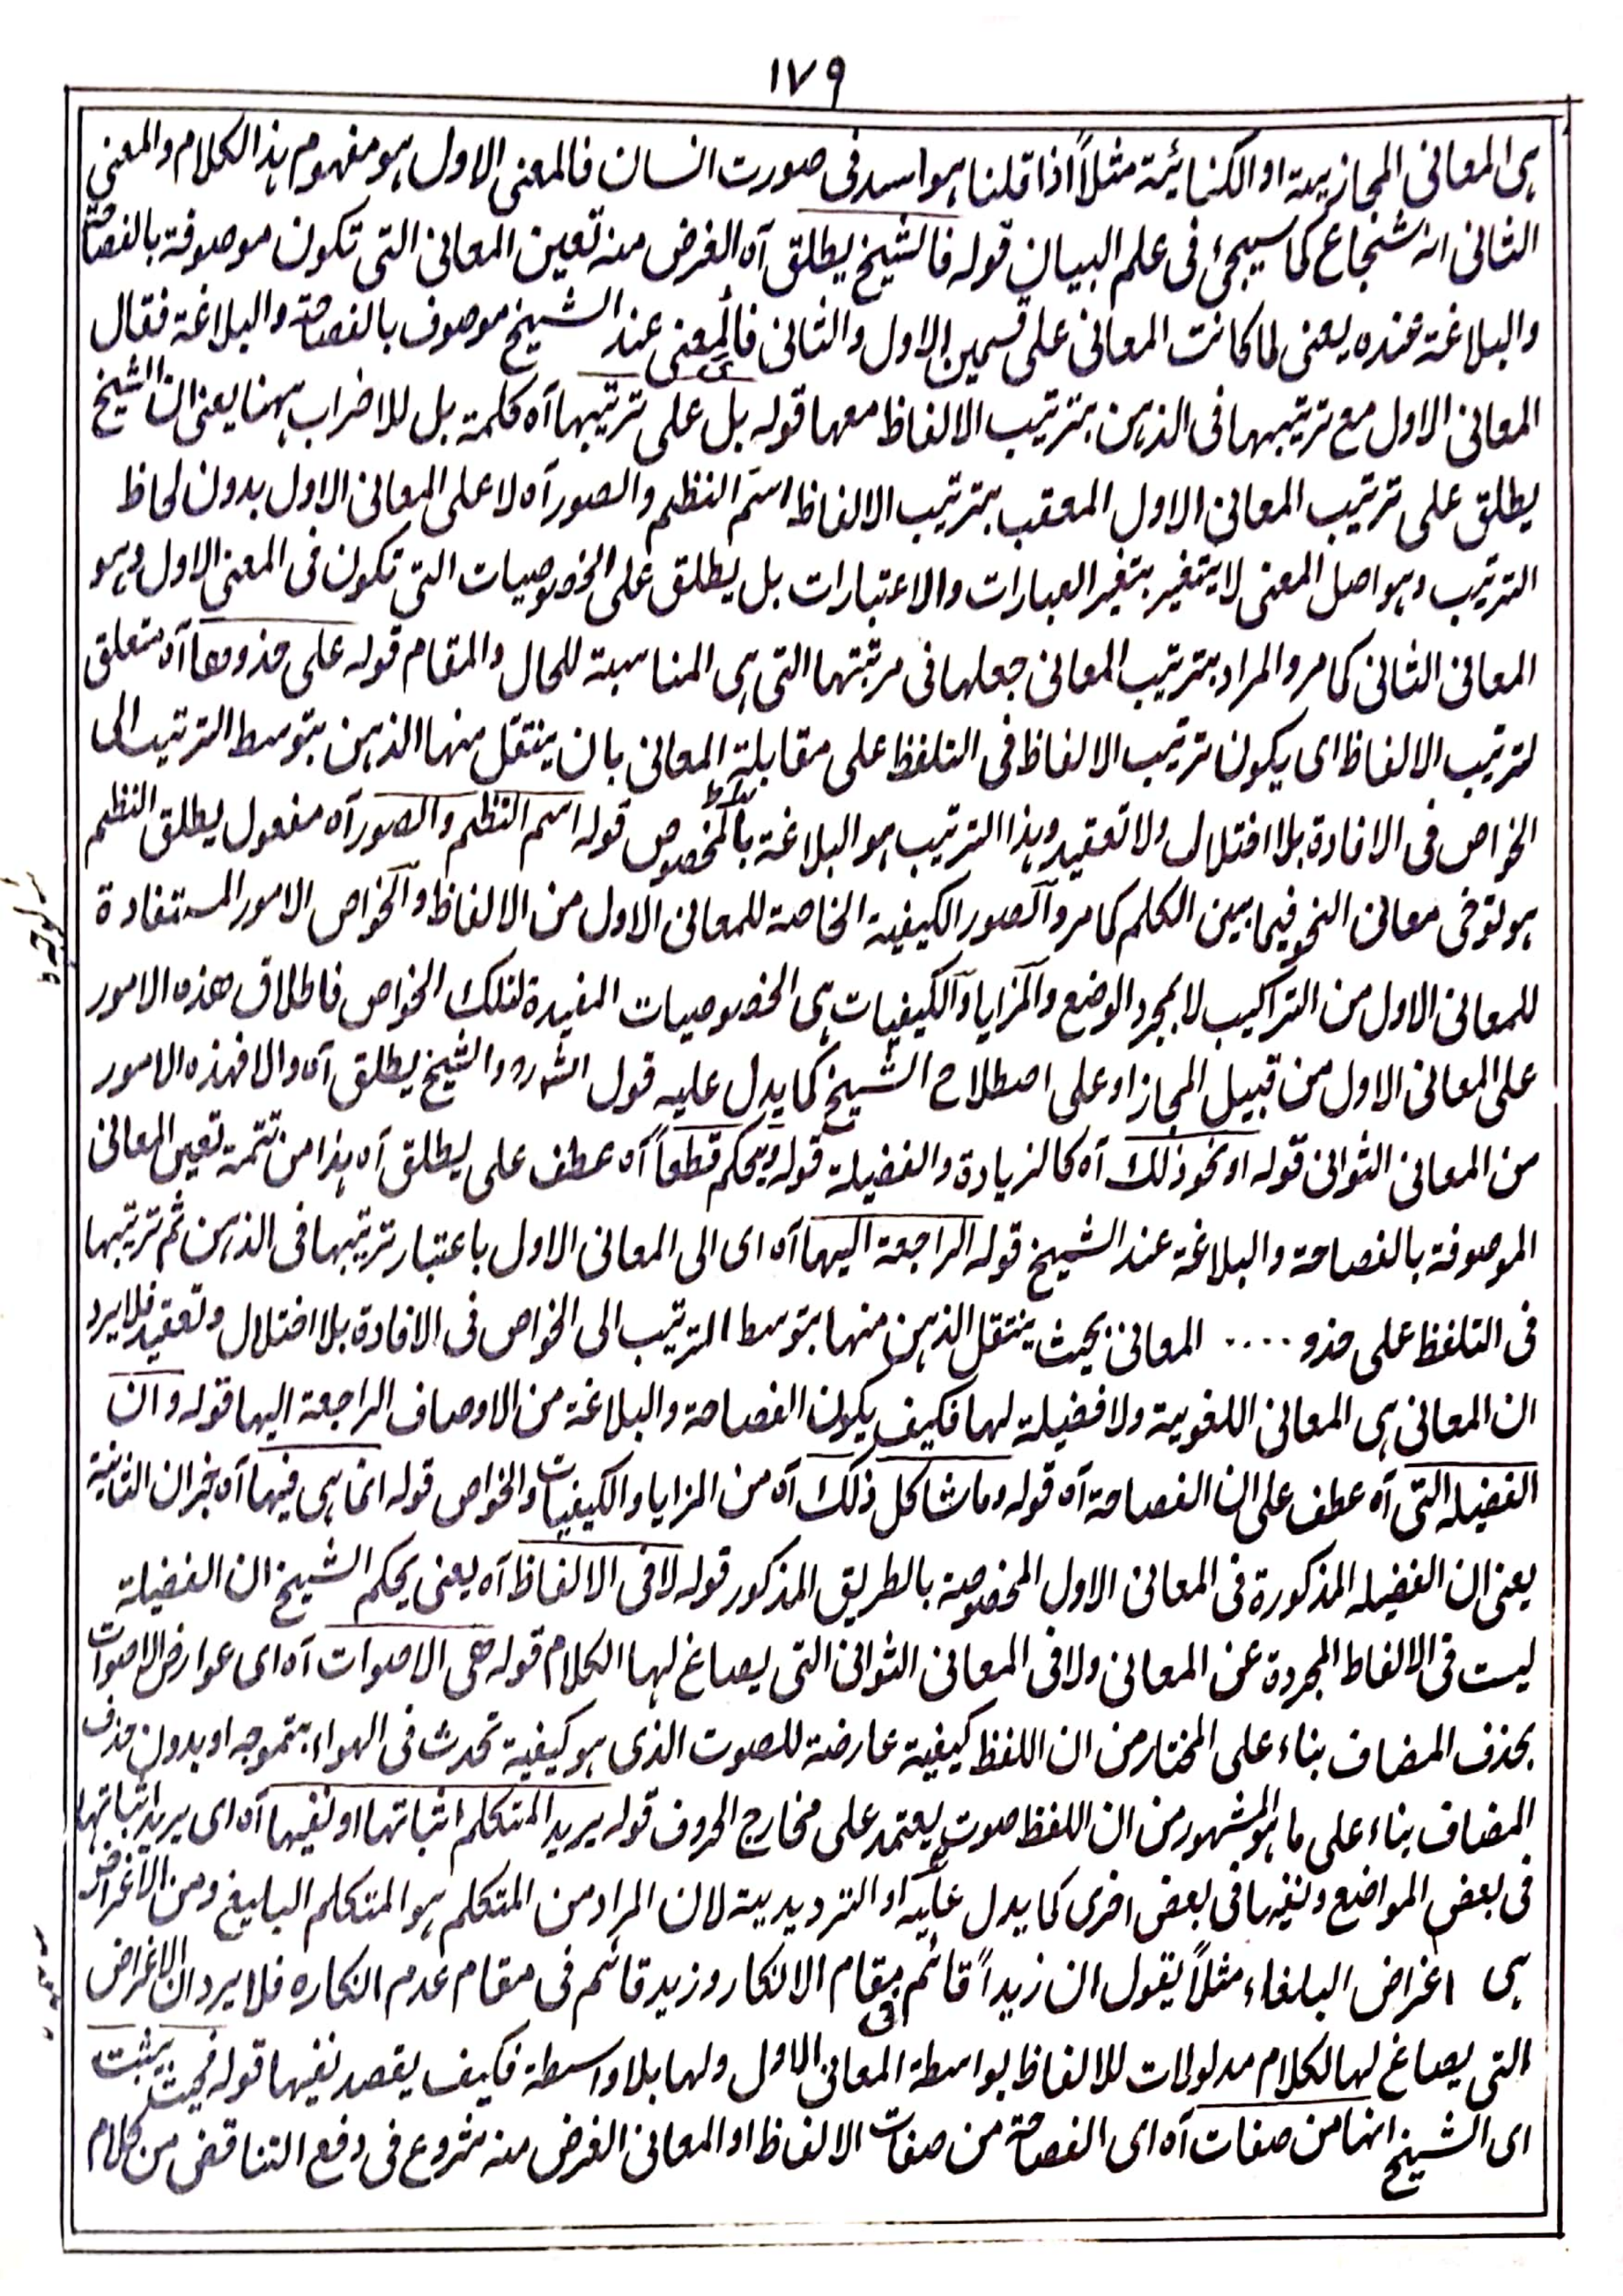 ١٧٩
ہی المعانی المجازیۃ او الکنائیۃ مثلاً اذا قلنا ہو اسد فی صورت انسان فالمعنی الاول ہو مفہوم ہذا الکلام والمعنی
الثانی انہ شجاع کما سیجئ فی علم البیان قولہ فالشیخ یطلق آہ الغرض منہ تعین المعانی التی تکون موصوفۃ بالفصاحۃ
والبلاغۃ عندہ یعنی لما کانت المعانی علی قسمین الاول والثانی فالمعنی عند الشیخ موصوف بالفصاحۃ والبلاغۃ فقال
المعانی الاول مع ترتیبہا فی الذہن بترتیب الالفاظ معہا قولہ بل علی ترتیبہا آہ کلمۃ بل للاضراب ہہنا یعنی ان الشیخ
یطلق علی ترتیب المعانی الاول المعقب بترتیب الالفاظ اسم النظم والصور آہ لا علی المعانی الاول بدون لحاظ
الترتیب وہو اصل المعنی لا یتغیر بتغیر العبارات والاعتبارات بل یطلق علی الخصوصیات التی تکون فی المعنی الاول وہو
المعانی الثانی کما مر والمراد بترتیب المعانی جعلہا فی مرتبتہا التی ہی المناسبۃ للحال والمقام قولہ علی حذوہا آہ متعلق
لترتیب الالفاظ ای یکون ترتیب الالفاظ فی التلفظ علی مقابلۃ المعانی بان ینتقل منہا الذہن بتوسط الترتیب الی
الخواص فی الافادۃ بلا اختلال ولا تعقید وہذا الترتیب ہو البلاغۃ بالمخصوص قولہ اسم النظم والصور آہ مفعول یطلق النظم
ہو توخی معانی النحو فیما بین الکلم کما مر والصور الکیفیۃ الخاصۃ للمعانی الاول من الالفاظ والخواص الامور المستفادۃ
للمعانی الاول من التراکیب لا بمجرد الوضع والمزایا والکیفیات ہی الخصوصیات المفیدۃ لتلک الخواص فاطلاق ھذہ الامور
علی المعانی الاول من قبیل المجاز او علی اصطلاح الشیخ کما یدل علیہ قول الشرہ والشیخ یطلق آہ والا فہذہ الامور
من المعانی الثوانی قولہ او نحو ذلک آہ کالزیادۃ والفضیلۃ قولہ ویحکم قطعاً آہ عطف علی یطلق آہ ہذا من تتمۃ تعین المعانی
الموصوفۃ بالفصاحۃ والبلاغۃ عند الشیخ قولہ الراجعۃ الیہا آہ ای الی المعانی الاول باعتبار ترتیبہا فی الذہن ثم ترتیبہا
فی التلفظ علی حذو .... المعانی بحیث ینتقل الذہن منہا بتوسط الترتیب الی الخواص فی الافادۃ بلا اختلال وتعقید فلا یرد
ان المعانی ہی المعانی اللغویۃ ولا فضیلۃ لہا فکیف یکون الفصاحۃ والبلاغۃ من الاوصاف الراجعۃ الیہا قولہ وان
الفضیلہ التی آہ عطف علی ان الفصاحۃ آہ قولہ وما شاکل ذلک آہ من المزایا والکیفیات والخواص قولہ انما ہی فیہا آہ خبر ان الثانیۃ
یعنی ان الفضیلہ المذکورۃ فی المعانی الاول المخصوصۃ بالطریق المذکور قولہ لا فی الالفاظ آہ یعنی یحکم الشیخ ان الفضیلۃ
لیست فی الالفاظ المجردۃ عن المعانی ولا فی المعانی الثوانی التی یصاغ لہا الکلام قولہ ھی الاصوات آہ ای عوارض الاصوات
بحذف المضاف بناء علی المختار من ان اللفظ کیفیۃ عارضۃ للصوت الذی ہو کیفیۃ تحدث فی الہواء بتموجہ او بدون حذف
المضاف بناء علی ما ہو المشہور من ان اللفظ صوت یعتمد علی مخارج الحروف قولہ یرید المتکلم اثباتہا او نفیہا آہ ای یرید اثباتہا
فی بعض المواضع ونفیہا فی بعض اخری کما یدل علیہ او التردیدیۃ لان المراد من المتکلم ہو المتکلم البلیغ ومن الاغراض
ہی اغراض البلغاء مثلاً یقول ان زیداً قائم فی مقام الانکار وزید قائم فی مقام عدم انکارہ فلا یرد ان الاغراض
التی یصاغ لہا الکلام مدلولات للالفاظ بواسطۃ المعانی الاول ولہا بلا واسطۃ فکیف یقصد نفیہا قولہ فحیث یثبت
ای الشیخ انہا من صفات آہ ای الفصاحۃ من صفات الالفاظ او المعانی الغرض منہ شروع فی دفع التناقض من کلام